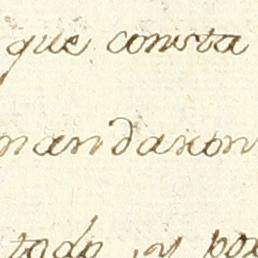 que consta
mandaron
todo, y por